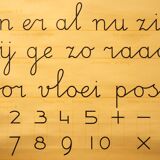 n er al nu zi
ij ge zo raa
or vloei pos
1 2 3 4 5 + -
6 7 8 9 10 ×